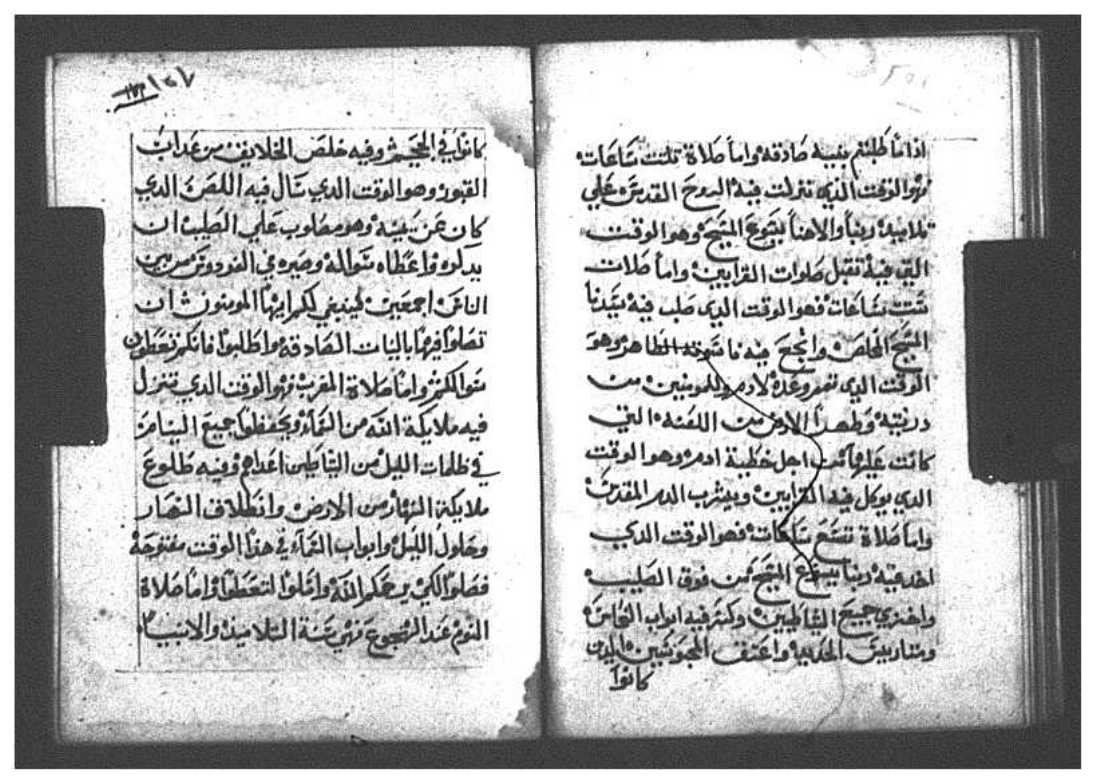 اذا ما طلبتم بنية صادقه واما صلاة تلت ساعات
فهو الوقت الذي نزلت فيه الروح القدس علي
تلاميد ربنا والاهنا يسوع المسيح وهو الوقت
الذي فيه تقبل صلوات القرابين واما صلات
ست ساعات فهو الوقت الدي صلب فيه سيدنا
المسيح المخلص وانجع فيه ناسوته الطاهر وهو
الوقت الدي تم وعده لادم وللمومنين من
دريته وطهر الارض من اللعنه التي
كانت عليها من اجل خطية ادم وهو الوقت
الدي يوكل فيه القرابين ويشرب الدم المقدس
واما صلاة تسع ساعات فهو الوقت الدي
اخد فيه ربنا يسوع المسيح من فوق الصليب
واخزي جميع الشياطين وكسر فيه ابواب النحاس
ومتاريس الحديد واعتق المحبوسين الدين
كانوا
١٢٧
كانوا في الجحيم وفيه خلص الخلايق من عداب
القبور وهو الوقت الدي سال فيه اللص الدي
كان عن يمينه وهو مصلوب علي الصليب ان
يدكره واعطاه سواله وصيره في الفردوس من بين
الناس اجمعين فينبغي لكم ايها المومنون ان
تصلوا فيها بالنيات الصادقه واطلبوا فانكم تعطون
سوالكم واما صلاة المغرب فهو الوقت الدي تنزل
فيه ملايكة الله من السماء ويحفظوا جميع الناس
في ظلمات الليل من الشياطين اعداهم وفيه طلوع
ملايكة النهار من الارض وانطلاق النهار
وحلول الليل وابواب السماء في هدا الوقت مفتوحة
فصلوا لكي يرحمكم الله واسلوا لتعطوا واما صلاة
النوم عند الهجوع فهي سنة التلاميد والانبيا